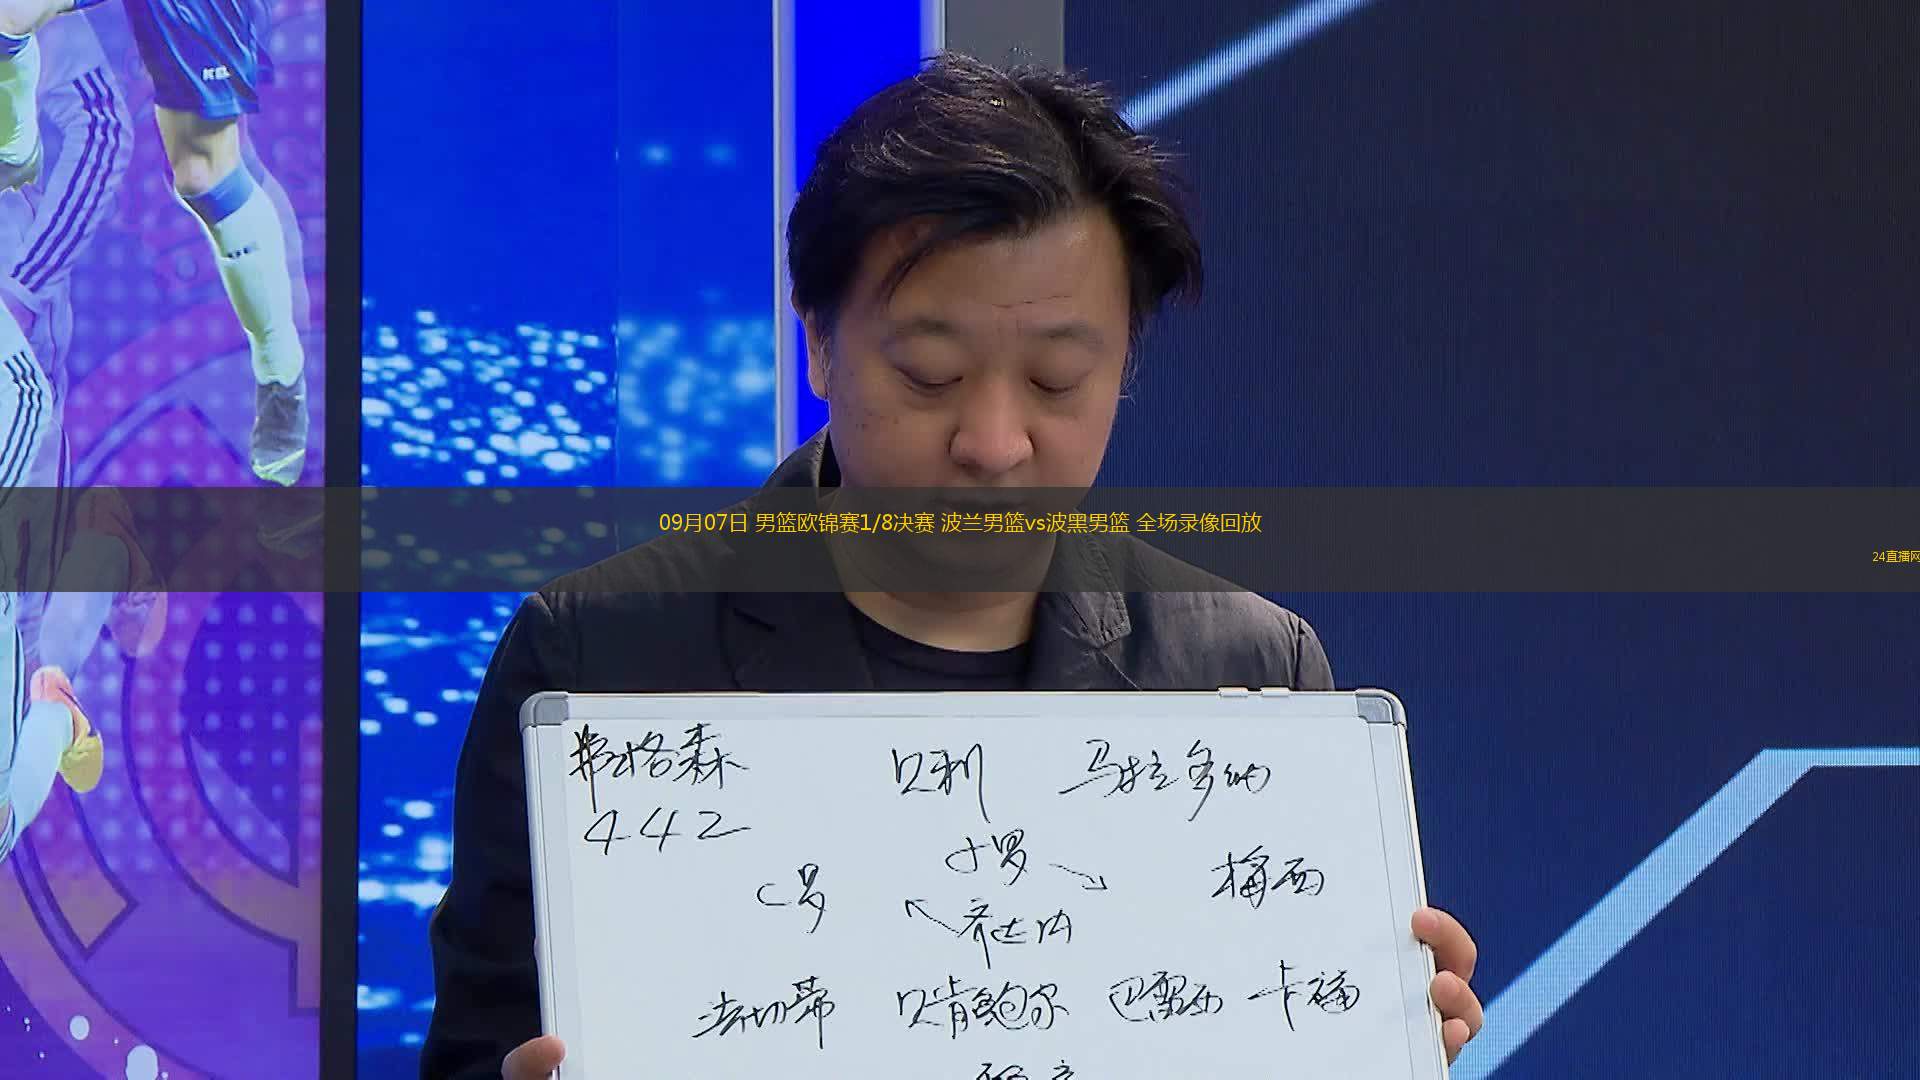 KEL
09月07日 男篮欧锦赛1/8决赛 波兰男篮vs波黑男篮 全场录像回放
24直播网
弗格森 贝利 马拉多纳
442
小罗
C罗 梅西
齐达内
法切蒂 贝肯鲍尔 巴雷西 卡福